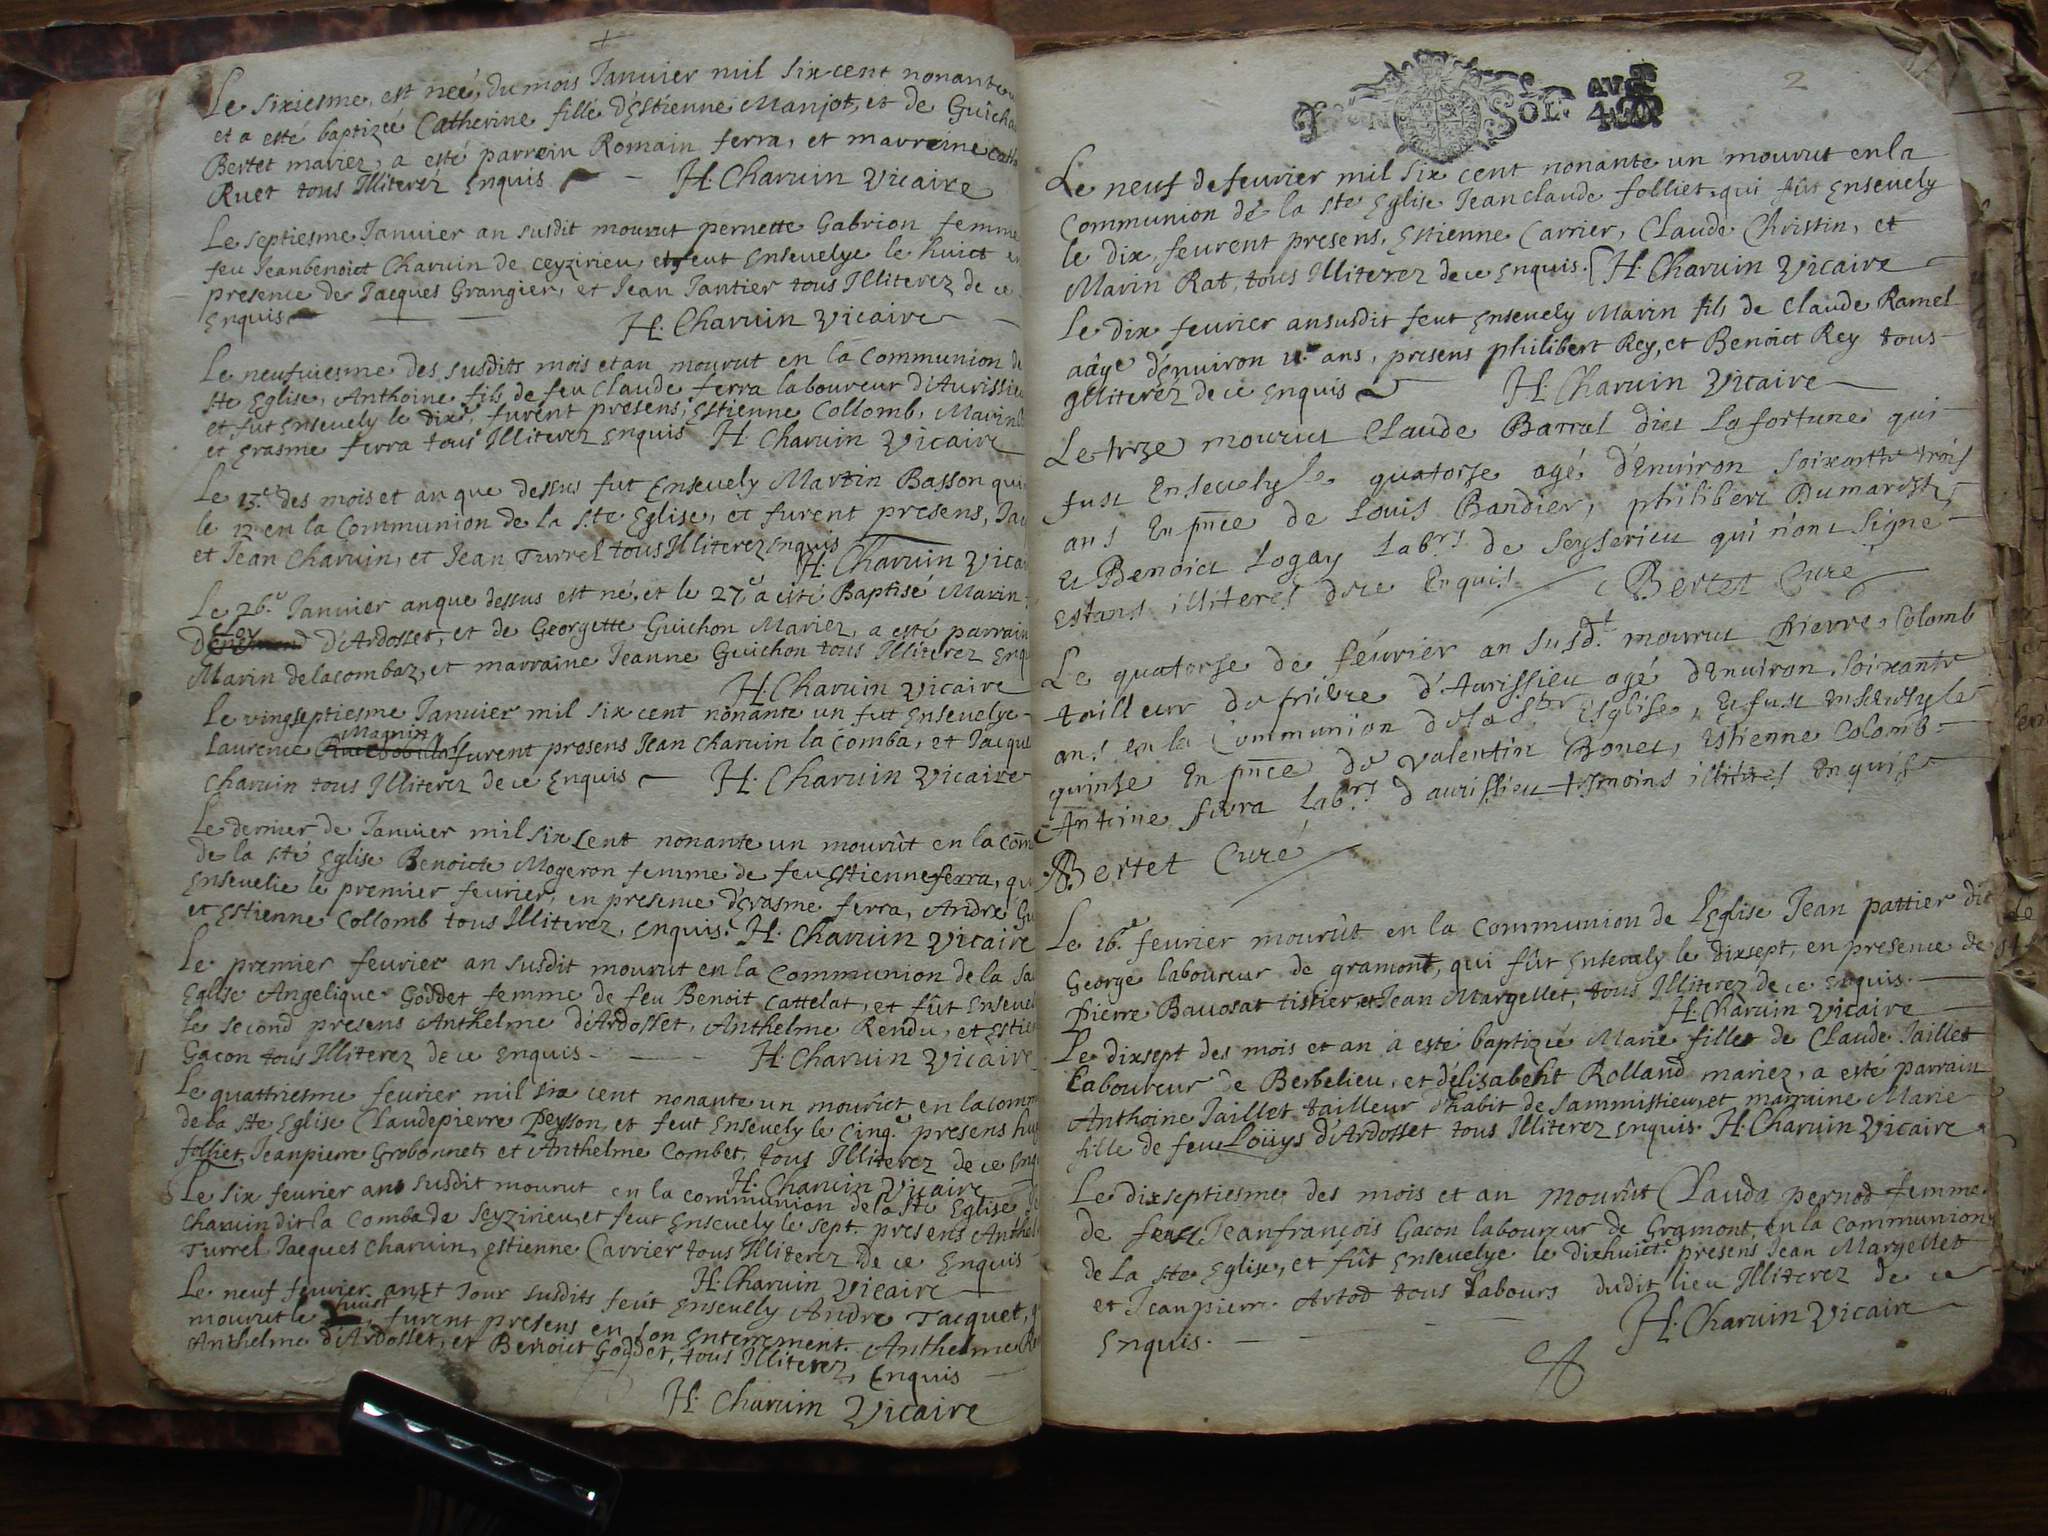 Le sixiesme, est néé, du mois Januier mil six cent nonante
et a esté baptizée Catherine fille d'Estienne Manjot, et de
Bertet mariez, a esté parrein Romain ferra, et marreine
Ruet tous Illiterez Enquis H. Charuin Vicaire
Le septiesme Januier an susdit mourut pernette Gabrion femme
feu Jeanbenoict Charuin de ceyzirieu, et feut Enseuelye le huict
presence de Jacques Grangier, et Jean Tantier tous Illiterez de ce
Enquis H. Charuin Vicaire
Le neufuiesme des susdits mois et an mourut en la Communion
ste Eglise, Anthoine fils de feu Claude ferra laboureur d'Aurissieu
et fut Enseuely le dixe, furent presens, Estienne Collomb, Marin
et Erasme ferra tous Illiterez Enquis H. Charuin Vicaire
Le 13.e des mois et an que dessus fut Enseuely Martin Basson qui
le 12 en la Communion de la Ste Eglise, et furent presens,
et Jean Charuin, et Jean Turrel tous Illiterez Enquis
H. Charuin
Le 26.e Januier an que dessus est né, et le 27e a eité Baptisé Marin
d'Ardosset, et de Georgette Guichon Mariez, a esté parrain
Marin delacombaz, et marraine Jeanne Guichon tous Illiterez
H. Charuin Vicaire
Le vingseptiesme Januier mil six cent nonante un fut Enseuelye
Mamin
Laurence furent presens Jean Charuin la Comba, et
Charuin tous Illiterez de ce Enquis H. Charuin Vicaire
Le dernier de Januier mil six Cent nonante un mourût en la
de la sté Eglise Benoicte Mogeron femme de feu Estienne ferra,
Enseuelie le premier feurier, en presence d'Erasme ferra, André
et Estienne Collomb tous Illiterez, Enquis. H. Charuin Vicaire
Le premier feurier an susdit mourut en la Communion de la
Eglise Angelique Goddet femme de feu Benoit Cattelat, et fût
le second presens Anthelme d'Ardosset, Anthelme Rendu, et
Gacon tous Illiterez de ce Enquis H. Charuin Vicaire
Le quattriesme feurier mil six cent nonante un mourut en la
de la ste Eglise Claudepierre Peysson, et feut Enseuely le Cinq.e presens
folliet, Jeanpierre Grobonnet, et Anthelme Combet, tous Illiterez de ce
H. Charuin Vicaire
Le six feurier an susdit mourut en la communion de la Ste Eglise
Charuin dit la Comba de Seyzirieu, et feut Enseuely le sept. presens
Turrel, Jacques Charuin, Estienne Carrier tous Illiterez de ce Enquis
H. Charuin Vicaire
Le neuf feurier an et Jour susdits feût Enseuely Andre Jacquet,
mourut le huict, furent presens en son enterrement. Anthelme
Anthelme d'Ardosset, et Benoict Goddet, tous Illiterez, Enquis
H. Charuin Vicaire
2
SOL
Le neuf de feurier mil six cent nonante un mourut en la
Communion de la ste Eglise Jean Claude folliet, qui fût Enseuely
le dix, feurent presens, Estienne Carrier, Claude Christin, et
Marin Rat, tous Illiterez de ce Enquis. H. Charuin Vicaire
Le dix feurier an susdit feut Enseuely Marin fils de Claude Ramel
aâge d'enuiron ans, presens philibert Rey, et Benoict Rey tous
Illiteréz de ce Enquis H. Charuin Vicaire
Le treze mourut Claude Barral dict La fortune qui
fust Enseuely le quatorse agé d'enuiron soixante trois
ans En pnce de Louis Bardier, philibert Dumarest
et Benoict Logay Labrs de Seyserieu qui n'ont signé
Estans illiteres de ce Enquis Bertet Curé
Le quatorse de féurier an susdt mourut Pierre Colomb
tailleur de prierre d'Aurissieu agé d'enuiron soixante
ans en la Communion de la ste Esglise, et fust enseuely le
quinse En pnce de Valentin Bouet, Estienne Colomb
Antoine ferra Labrs d'aurissieu tesmoins illiteres Enquis
Bertet Curé
Le 16.e feurier mourût en la communion de l'Eglise Jean pattier dit
George laboureur de gramont, qui fût Enseuely le dixsept, en presence de
Pierre Bauosat tistier, et Jean Margellet, tous Illiterez de ce Enquis.
H. Charuin Vicaire
Le dixsept des mois et an à esté baptizée Marie fille de Claude Jaillet
Laboureur de Berbelieu, et d'élisabeht Rolland mariez, a esté parrain
Anthoine Jaillet tailleur d'habit de Sammissieu, et marraine Marie
fille de feu Loüys d'Ardosset tous Illiterez Enquis. H. Charuin Vicaire
Le dixseptiesme des mois et an mourût Clauda pernod femme
de feu Jeanfrançois Gacon laboureur de Gramont, en la Communion
de la ste Eglise, et fût Enseuelye le dixhuicte presens Jean Margellet
et Jeanpierre Artod tous Labours dudit lieu Illiterez de ce
Enquis. H. Charuin Vicaire